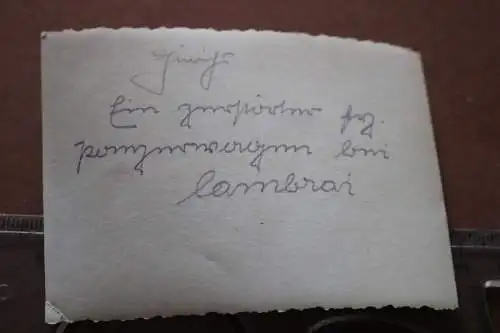 Ein zerstörter frz.
panzerwagen bei
Cambrai